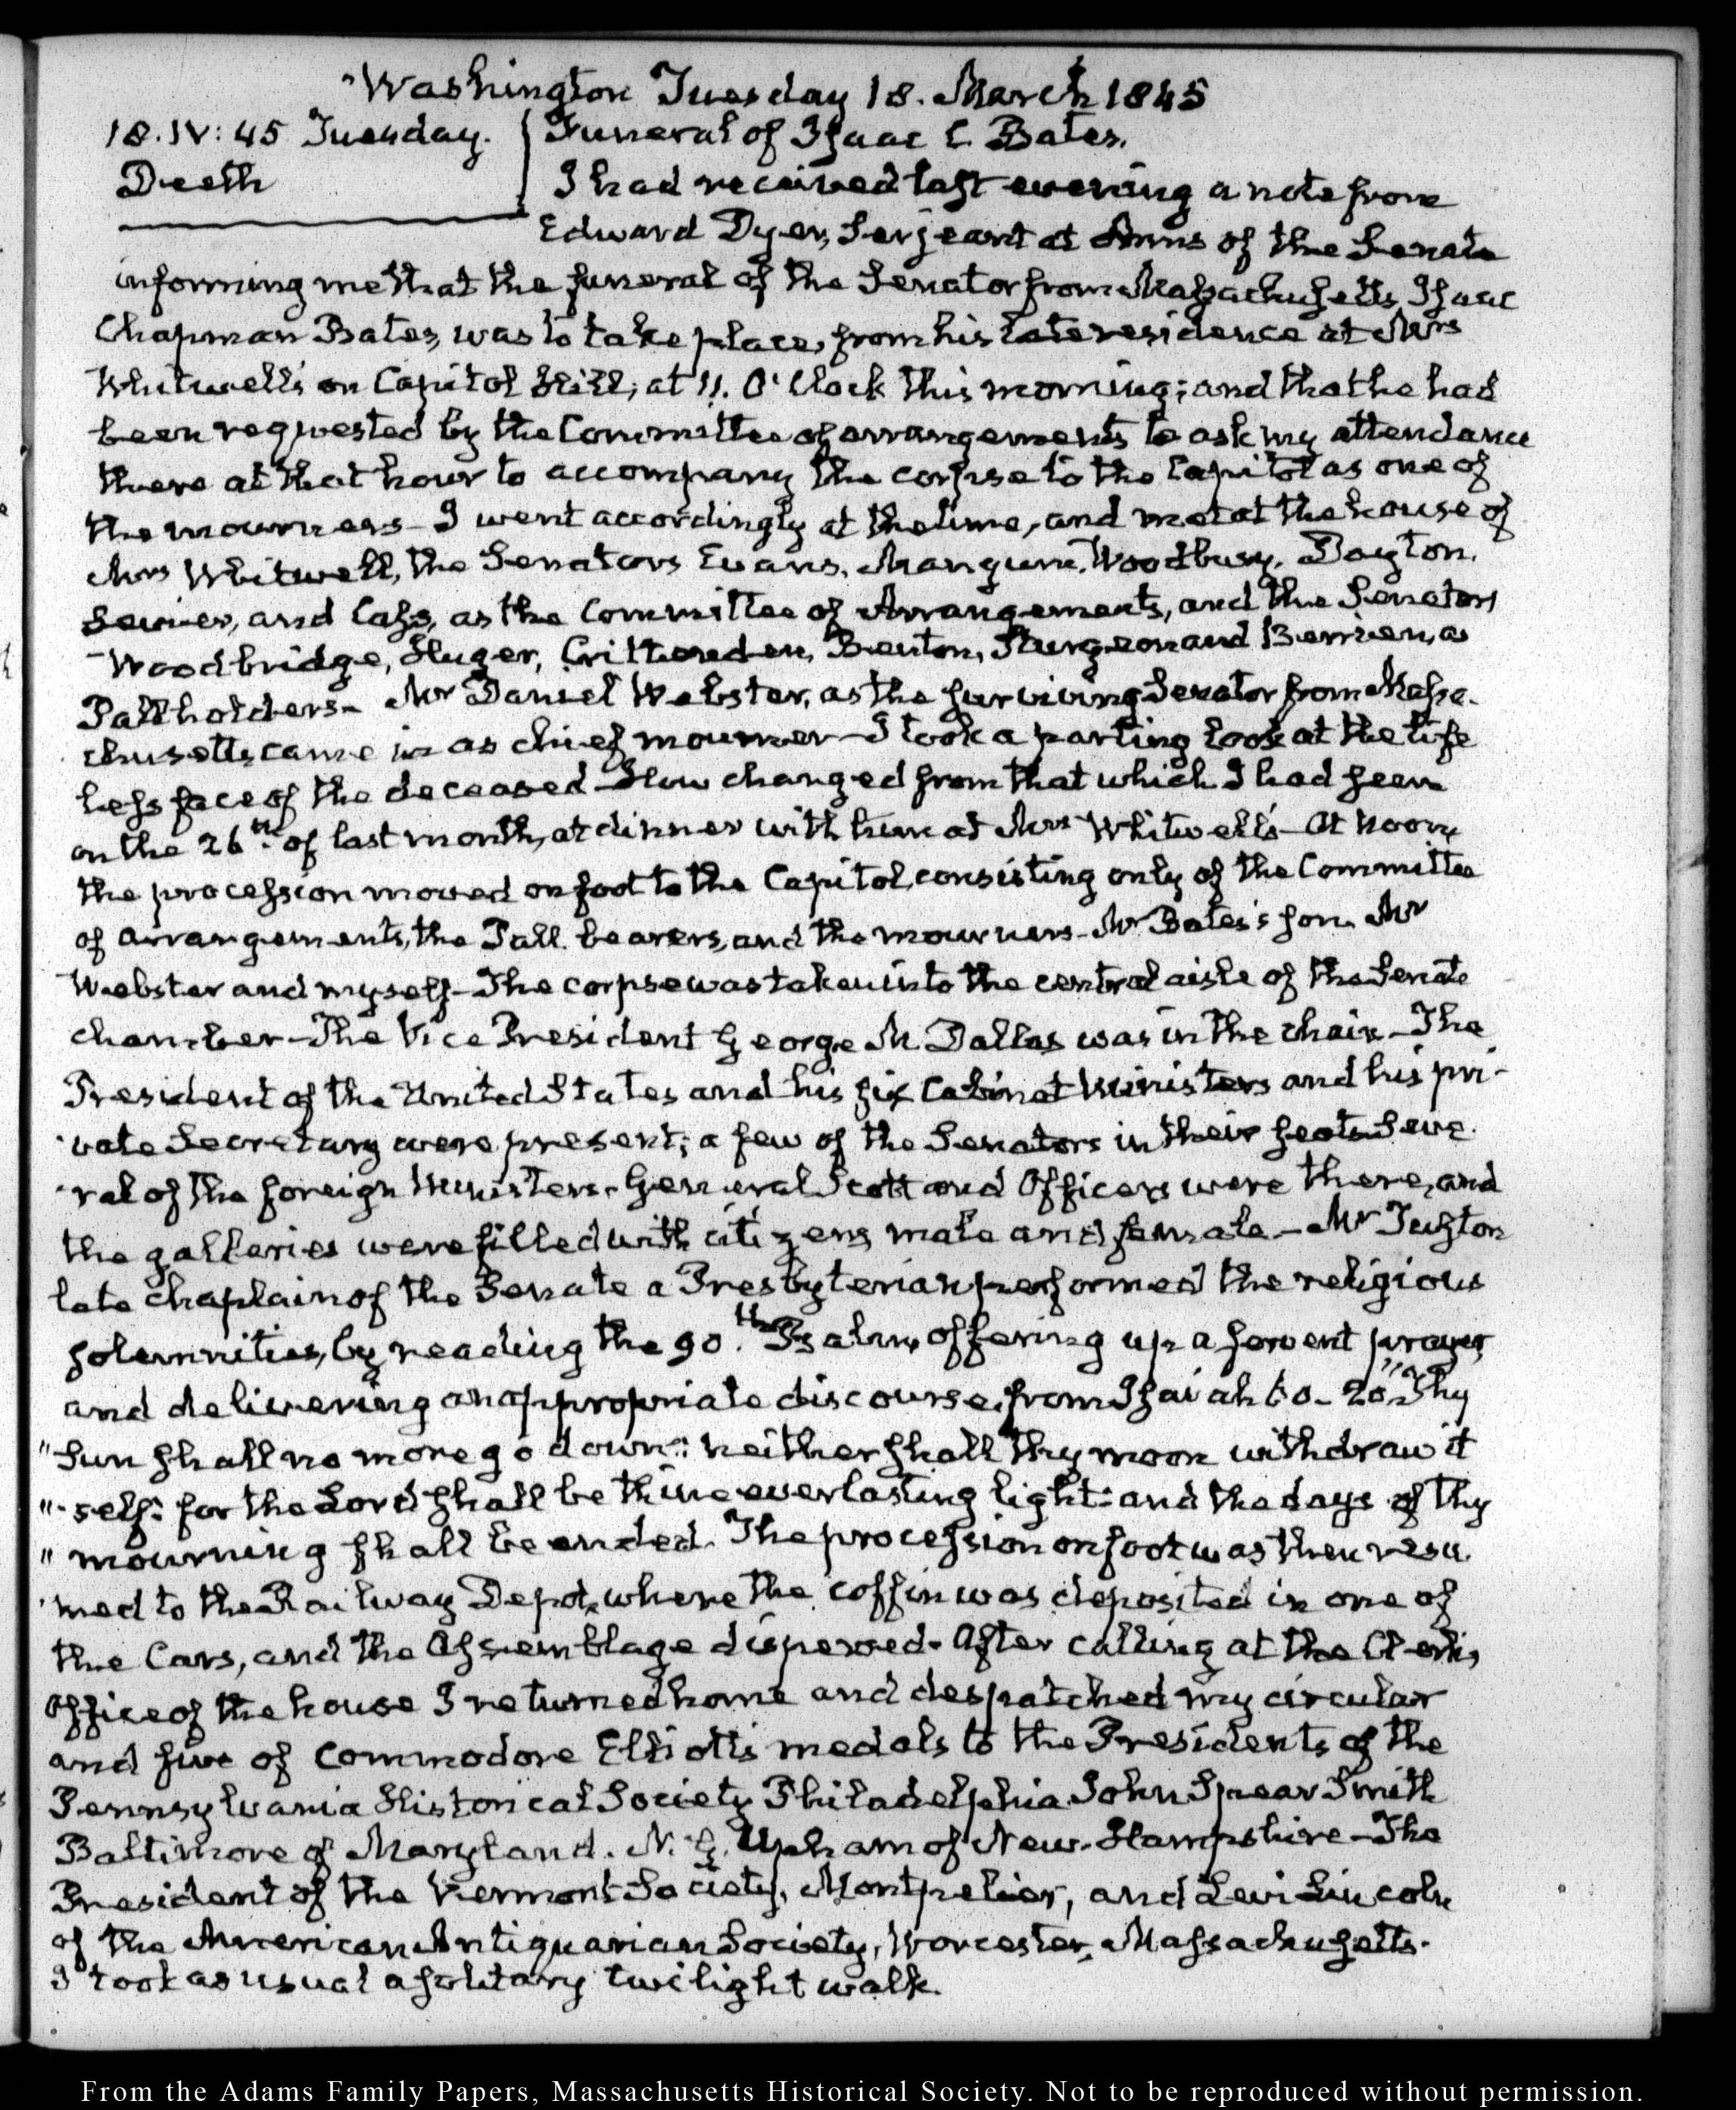 Washington Tuesday 18. March 1845
18. IV: 45 Tuesday.
Death
Funeral of Isaac C. Bates.
I had received last evening a note from
Edward Dyer, Serjeant at Arms of the Senate
informing me that the funeral of the Senator from Massachusetts, Isaac
Chapman Bates, was to take place, from his late residence at Mrs
Whitwell's on Capitol Hill, at 11. O'Clock this morning; and that he had
been requested by the Committee of arrangements to ask my attendance
there at that hour to accompany the corpse to the Capitol as one of
the mourners— I went accordingly at the time, and met at the house of
Mrs Whitwell, the Senators Evans, Mangum, Woodbury, Dayton,
Sevier, and Cass, as the Committee of Arrangements, and the Senators
Woodbridge, Huger, Crittenden, Benton, Sturgeon and Berrien, as
Pall holders— Mr Daniel Webster, as the surviving Senator from Massa-
chusetts came in as chief mourner— I took a parting look at the life
less face of the deceased— How changed from that which I had seen
on the 26th. of last month, at dinner with him at Mrs Whitwell's— At noon,
the procession moved on foot to the Capitol, consisting only of the Committee
of arrangements, the Pall bearers, and the mourners— Mr Bates's son, Mr
Webster and myself— The corpse was taken into the central aisle of the Senate
chamber— The Vice President George M. Dallas was in the chair— The
President of the United States and his six Cabinet Ministers and his pri-
vate Secretary were present; a few of the Senators in their seats. Seve-
ral of the foreign Ministers. General Scott and Officers were there, and
the galleries were filled with citizens male and female.— Mr Tuston
late Chaplain of the Senate a Presbyterian performed the religious
solemnities, by reading the 90.th Psalm, offering up a fervent prayer,
and delivering an appropriate discourse, from Isaiah 60– 20 "Thy
"Sun shall no more go down: neither shall thy moon withdraw it
"self: for the Lord shall be thine everlasting light: and the days of thy
"mourning shall be ended. The procession on foot was then resu-
med to the Railway Depot, where the coffin was deposited in one of
the Cars, and the Assemblage dispersed. After calling at the Clerk's
Office of the house I returned home and despatched my circular
and five of Commodore Elliott's medals to the Presidents of the
Pennsylvania Historical Society Philadelphia. John Spear Smith
Baltimore of Maryland. N. G. Upham of New-Hampshire— The
President of the Vermont Society, Montpelier, and Levi Lincoln
of the American Antiquarian Society, Worcester, Massachusetts.
I took as usual a solitary twilight walk.
From the Adams Family Papers, Massachusetts Historical Society. Not to be reproduced without permission.